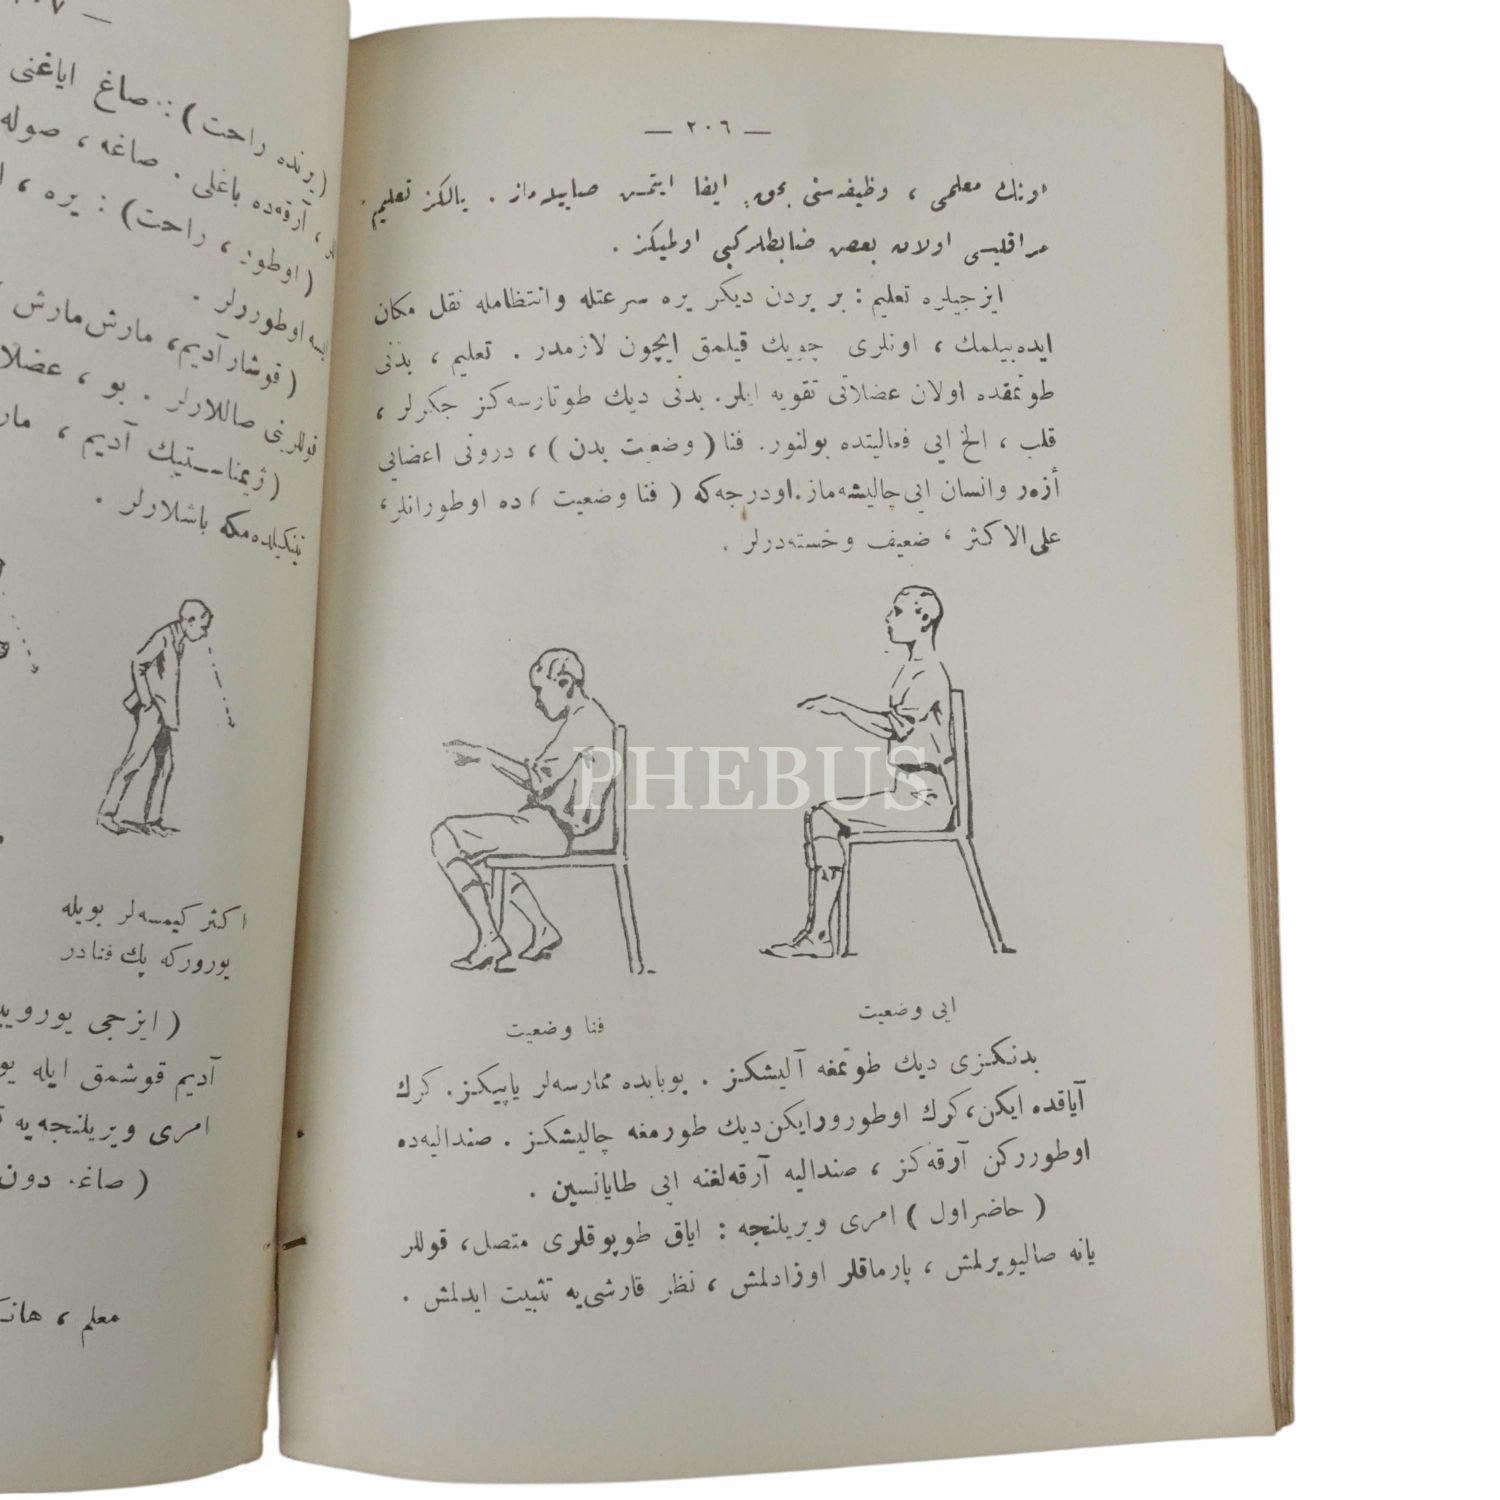 — ٢٠٦ —
اونك معلمی ، وظیفه‌سنی بحق ایفا ایتمش صاییله‌ماز . یالکز تعلیم
مراقلیسی اولان بعض ضابطلر کبی اولمیکز .
ایزجیلره تعلیم : بر یردن دیکر یره سرعتله وانتظامله نقل مکان
ایده‌بیلمك ، اونلری چویك قیلمق ایچون لازمدر . تعلیم ، بدنی
طوتمقده اولان عضلاتی تقویه ایلر . بدنی دیك طوتارسه‌کز جکرلر ،
قلب ، الخ ایی فعالیتده بولنور . فنا ( وضعیت بدن ) ، درونی اعضایی
أزه‌ر وانسان ایی چالیشه‌ماز . اودرجه‌که ( فنا وضعیت ) ده اوطورانلر ،
علی الاکثر ، ضعیف وخسته‌درلر .
ایی وضعیت
فنا وضعیت
بدنکزی دیك طوتمغه آلیشکز . بوبابده ممارسه‌لر یاپیکز . کرك
آیاقده ایکن ، کرك اوطورورایکن دیك طورمغه چالیشکز . صندالیه‌ده
اوطوررکن آرقه‌کز ، صندالیه آرقه‌لغنه ایی طایانسین .
( حاضر اول ) امری ویریلنجه : ایاق طوپوقلری متصل ، قوللر
یانه صالیویرلمش ، پارماقلر اوزادلمش ، نظر قارشی‌یه تثبیت ایدلمش .
( یرنده راحت ) : صاغ ایاغنی
آرقه‌ده باغلی . صاغه ، صوله
( اوطور ، راحت ) : یره ،
اوطورورلر .
( قوشار آدیم ، مارش مارش
قوللرینی صاللارلر . بو ، عضلا
( ژیمناستیك آدیم ، مار
باشلارلر .
اکثر کیمسه‌لر بویله
یورورکه پك فنادر
( ایزجی یورویـ
آدیم قوشمق ایله یو
امری ویریلنجه‌یه
( صاغه دون
معلم ، هانـ
PHEBUS